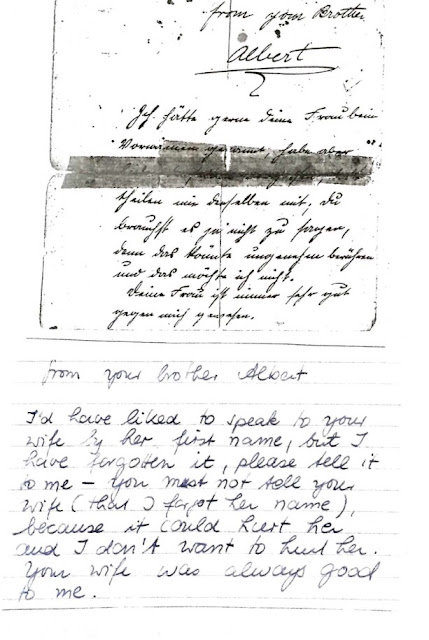 from your Brother
Albert
Ich hätte gerne deine Frau beim
Vornamen genannt, habe aber
mir denselben mit, du
brauchst es ja nicht zu sagen,
denn das könnte berühren
und das möchte ich nicht.
Deine Frau ist immer sehr gut
gegen mich gewesen.
from your brother Albert
I'd have liked to speak to your
wife by her first name, but I
have forgotten it, please tell it
to me – you must not tell your
wife (that I forgot her name),
because it could hurt her
and I don't want to hurt her.
Your wife was always good
to me.